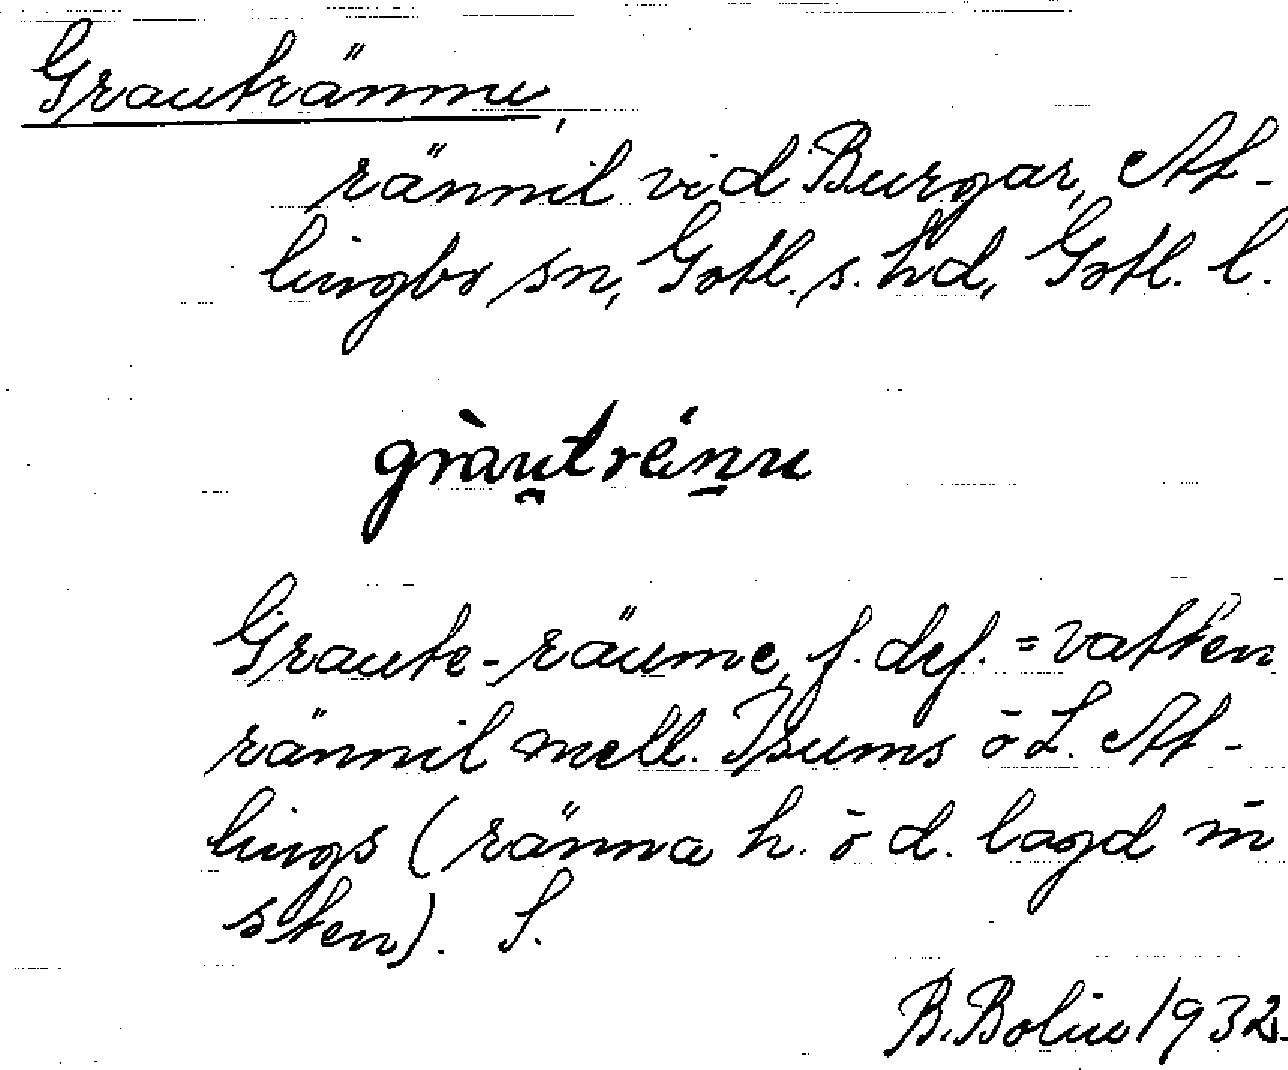 Grautrännu,
rännil vid Burgar, At-
lingbo sn, Gotl. s. hd, Gotl. l.
gràu̯trän̲u
Graute-räume, f. def. = vatten
rännil mell. Isums ō L. At-
lings (ränna h. ō d. lagd m̄
sten). S.
B. Bolin 1932.